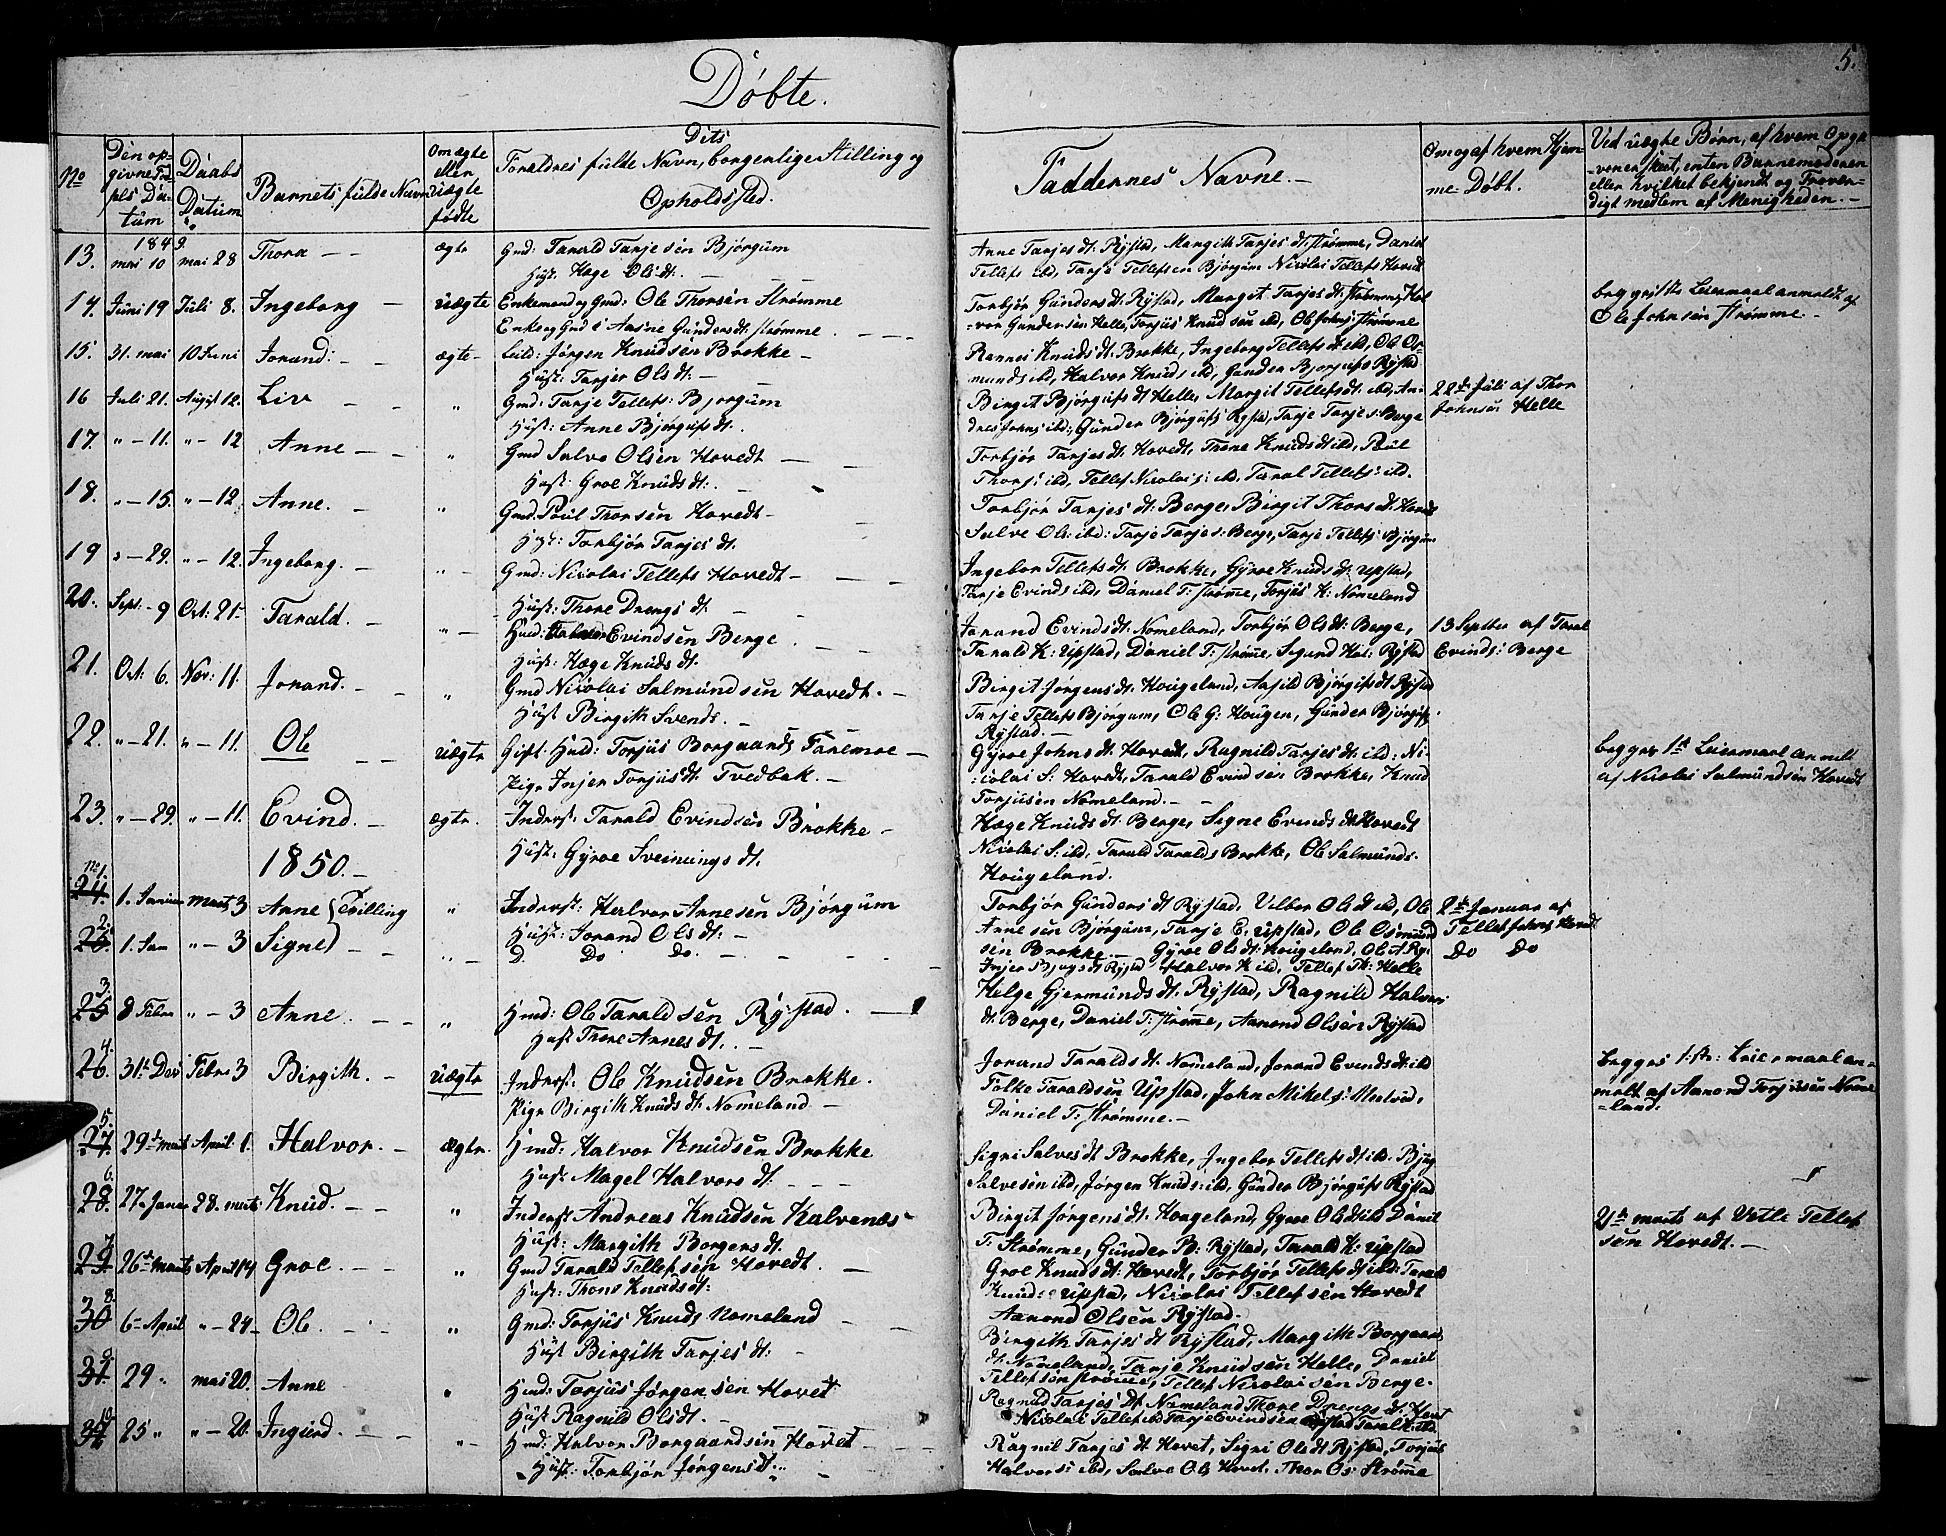 Døbte.
5.
No
Den op-
givne Fø-
sels Da-
tum
Daabs
Datum
Barnets fulde Navn
Om ægte
eller
uægte
fødte
Dits
Foraldres fulde Navn, borgenlige Stilling og
Opholdssted.
Faddernes Navne.
Om og af hvem Hjem-
me Døbt.
Ved uægte Børn, af hvem Opga-
ven er skeet, enten Barnemoderen
eller hvilket bekjendt og Trover-
digt medlem af Menigheden.
1849.
13. mai 10 mai 28 Thora ægte Gmd: Tarald Tarjesen Bjørgum
Hust. Hæge Olsdt.
Anne Tarjesdt: Rÿstad, Margith Tarjesdt: Strømme, Daniel
Tellefs ibd, Tarje Tellefsen Bjørgum Nicolai Tellefs Hovedt
14. Juni 19 Juli 8. Ingeborg uægte Enkemand og Gmd: Ole Thorsen Strømme
Enke og Aasne Gundersdt: Strømme.
Torbjør Gundersdt: Rÿstad, Margit Tarjesdt: Strømme, Hal-
vor Gundersen Helle, Torjus Knudsen ibd, Ole Johns: Strømme
begges 1ste Leiermaal anmeldt af
Ole Johnsen Strømme.
15. 31. mai 10 Juni Jorand: ægte Leild: Jørgen Knudsen Brokke
Hust: Tarjer Olsdt:
Rannei Knudsdt: Brokke, Ingeborg Tellefsdt ibd, Ole Os-
munds ibd, Halvor Knuds ibd, Gunder Bjorgufs Rÿstad
16 Juli 21. August 12. Liv " Gmd: Tarje Tellefs: Bjorgum
Hust: Anne Bjørgufsdt.
Birgit Bjørgufsdt Helle, Margit Tellefsdt: ibd, An-
dres Johns ibd:, Gunder Bjørgufs Rÿstad, Tarje Tarjes: Berge
22de Juli af Thor
Johnsen Helle
17. " 11. " 12 Anne " Gmd Salve Olsen Hovedt
Hust: Groe Knudsdt:
Torbjør Tarjesdt: Hovedt, Thone Knudsdt ibd, Poul
Thors: ibd, Tellef Nicolais: ibd, Taral Tellefs: ibd.
18. " 15. " 12. Anne. " Gmd. Poul Thorsen Hovedt
Hust: Torbjør Tarjesdt.
Torbjør Tarjesdt: Berge, Birgit Thorsdt: Hovedt
Salve Ols: ibd: Tarje Tarjes: Berge, Tarje Tellefs: Bjørgum
19 " 29. " 12. Ingeborg. " Gmd: Nicolai Tellefs Hovedt
Hust: Thore Drengsdt:
Ingebor Tellefsdt: Brokke, Gÿroe Knudsdt: Upstad,
Tarje Evinds ibd, Daniel T: Strømme, Torjus K: Nomeland
20. Sept. 9 Oct: 21 Tarald. " Hmd: Evindsen Berge
Hust: Hæge Knudsdt.
Jorand Evindsdt: Nomeland, Torbjør Olsdt: Berge,
Tarald K: Upstad, Daniel T: Strømme, Sigurd Hal: Rÿstad
13 Septter af Taral
Evinds: Berge
21. Oct: 6. Nov: 11. Jorand. " Gmd Nicolai Salmundsen Hovedt.
Hust Birgith Svends.
Birgit Jørgensdt: Hougeland, Aasild Bjørgufsdt Rÿstad
Tarje Tellefs Bjørgum, Ole G: Hougen, Gunder Bjørgufs.
Rÿstad.
22. " 21. " 11. Ole uægte Gift: Hmd: Torjus Borgaards Faremoe
Pige Injer Torjusdt: Tvedbak.
Gÿroe Johnsdt: Hovedt, Ragnild Tarjesdt: ibd: Ni-
colai S: Hovedt, Tarald Evindsen Brokke, Knud
Torjusen Nomeland.
begges 1st Leiermaal anmeldt
af Nicolai Salmundsen Hovedt
23. " 29. " 11. Evind. ægte. Inderst: Tarald Evindsen Brokke
Hust: Gÿroe Sveinungsdt.
Hæge Knudsdt: Berge, Signe Evindsdt: Hovedt
Nicolai S: ibd, Tarald Taralds Brokke, Ole Salmunds.
Hougeland.
1850.
No 1. 24. 1. Januar marts 3 Anne } Tvilling " Inderst: Halvor Arnesen Bjørgum
Hust: Jorand Olsdt:
Torbjør Gundersdt Rÿstad. Vilbor Olsdt ibd, Ole
Arnesen Bjørgum, Tarje E. Upstad, Ole Osmund-
sen Brokke.
2den Januar af
Tellef Johns: Hovedt
2. 25. 1. Jan " 3 Signe } " D. Do Do.
Gÿroe Olsdt: Hougeland, Ole A Rÿ:
Injer Bjugsdt Rÿstad Halvor K ibd, Tellef Th: Helle
Do Do
3. 25 8 Febr " 3 Anne. " Hmd: Ole Taraldsen Rÿstad.
Hust Thore Arnesdt.
Helge Gjermundsdt. Rÿstad, Ragnild Halvors-
dt: Berge, Daniel T: Strømme, Aanond Olsen Rÿstad
4. 26. 31te Des Febr 3 Birgith. uægte Inderst: Ole Knudsen Brokke.
Pige Birgith Knudsdt: Nomeland
Jorand Taraldsdt: Nomeland, Jorand Evindsdt: ibd
Folke Taraldsen Upstad, John Mikels:
Daniel T: Strømme.
begges 1ste: Leiermaal an-
meldt af Aanond Torjusen Nome-
land.
5. 27. 29de marts April 1. Halvor. ægte. Hmd: Halvor Knudsen Brokke
Hust: Magel Halvorsdt:
Signi Salvesdt Brokke, Ingebor Tellefsdt ibd. Bjug
Salvesen ibd, Jørgen Knuds: ibd, Gunder Bjørgufs Rÿstad
6. 28. 27. Januar 28. marts Knud. " Inderst Andreas Knudsen Kalvenæs
Hust: Margith Borgersdt.
Birgit Jørgensdt: Hougeland, Gyroe Olsdt ibd Daniel
T: Strømme, Gunder B: Rÿstad, Tarald K: Upstad
2den marts af Vetle Tellef-
sen Hovedt.
7. 29. 26de marts April 14 Groe. " Gmd Tarald Tellefsen Hovedt.
Hust: Thone Knudsdt:
Groe Knudsdt: Hovedt, Torbjør Tellefsdt ibd: Tarald
Knuds: Upstad, Nicolai Tellefsen Hovedt
Aanond Olsen Rÿstad.
8. 30 6 April " 24 Ole. " Gmd: Torjus Knuds Nomeland
Hust Birgith Tarjesdt:
Birgith Tarjesdt Rÿstad, Margith Borgaards-
dt: Nomeland, Tarje Knudsen Helle, Daniel
Tellefsen Strømme, Tellef Nicolaisen Berge.
9. 31. 29 " mai 20. Anne " Hmd: Torjus Jørgensen Hovet
Hust Ragnild Olsdt.
Ragnild Tarjesdt Nomeland Thore Drengsdt: Hovet
Nicolai Tellefs ibd Tarje Evindsen Upstad Tarald K: ibd.
10. 32 25 " " 20. Ingurd. " Hmd: Halvor Borgaardsen Hovet
Hust: Torbjør Jørgensdt:
Ragnil Tarjesdt Hovet, Signi Olsdt Rÿstad, Torjus
Halvors: ibd, Salve Ols Hovet, Thor Os: Strømme